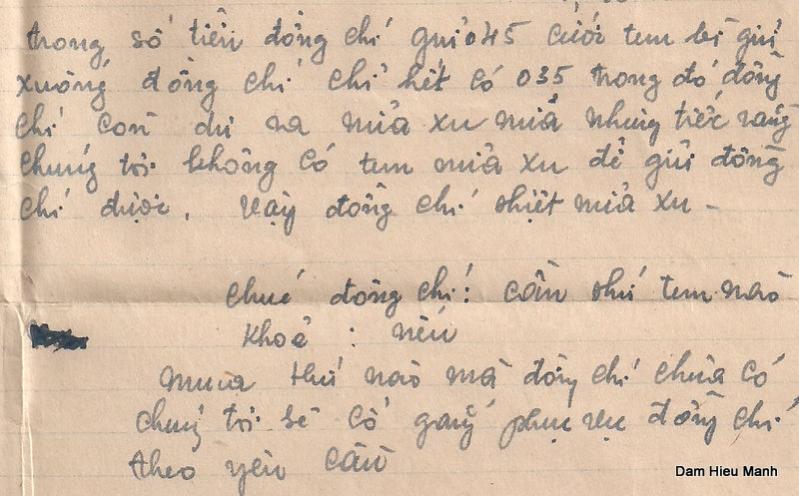 trong số tiền đồng chí gửi 045 cước tem bì gửi
xuống đồng chí chỉ hết có 035 trong đó đồng
chí còn dư ra nửa xu nửa nhưng tiếc rằng
chúng tôi không có tem nửa xu để gửi đồng
chí được. Vậy đồng chí thiệt nửa xu -
chúc đồng chí: cần thứ tem nào
khoẻ : nếu
mua thứ nào mà đồng chí chưa có
chúng tôi sẽ cố gắng phục vụ đồng chí
theo yêu cầu
Dam Hieu Manh